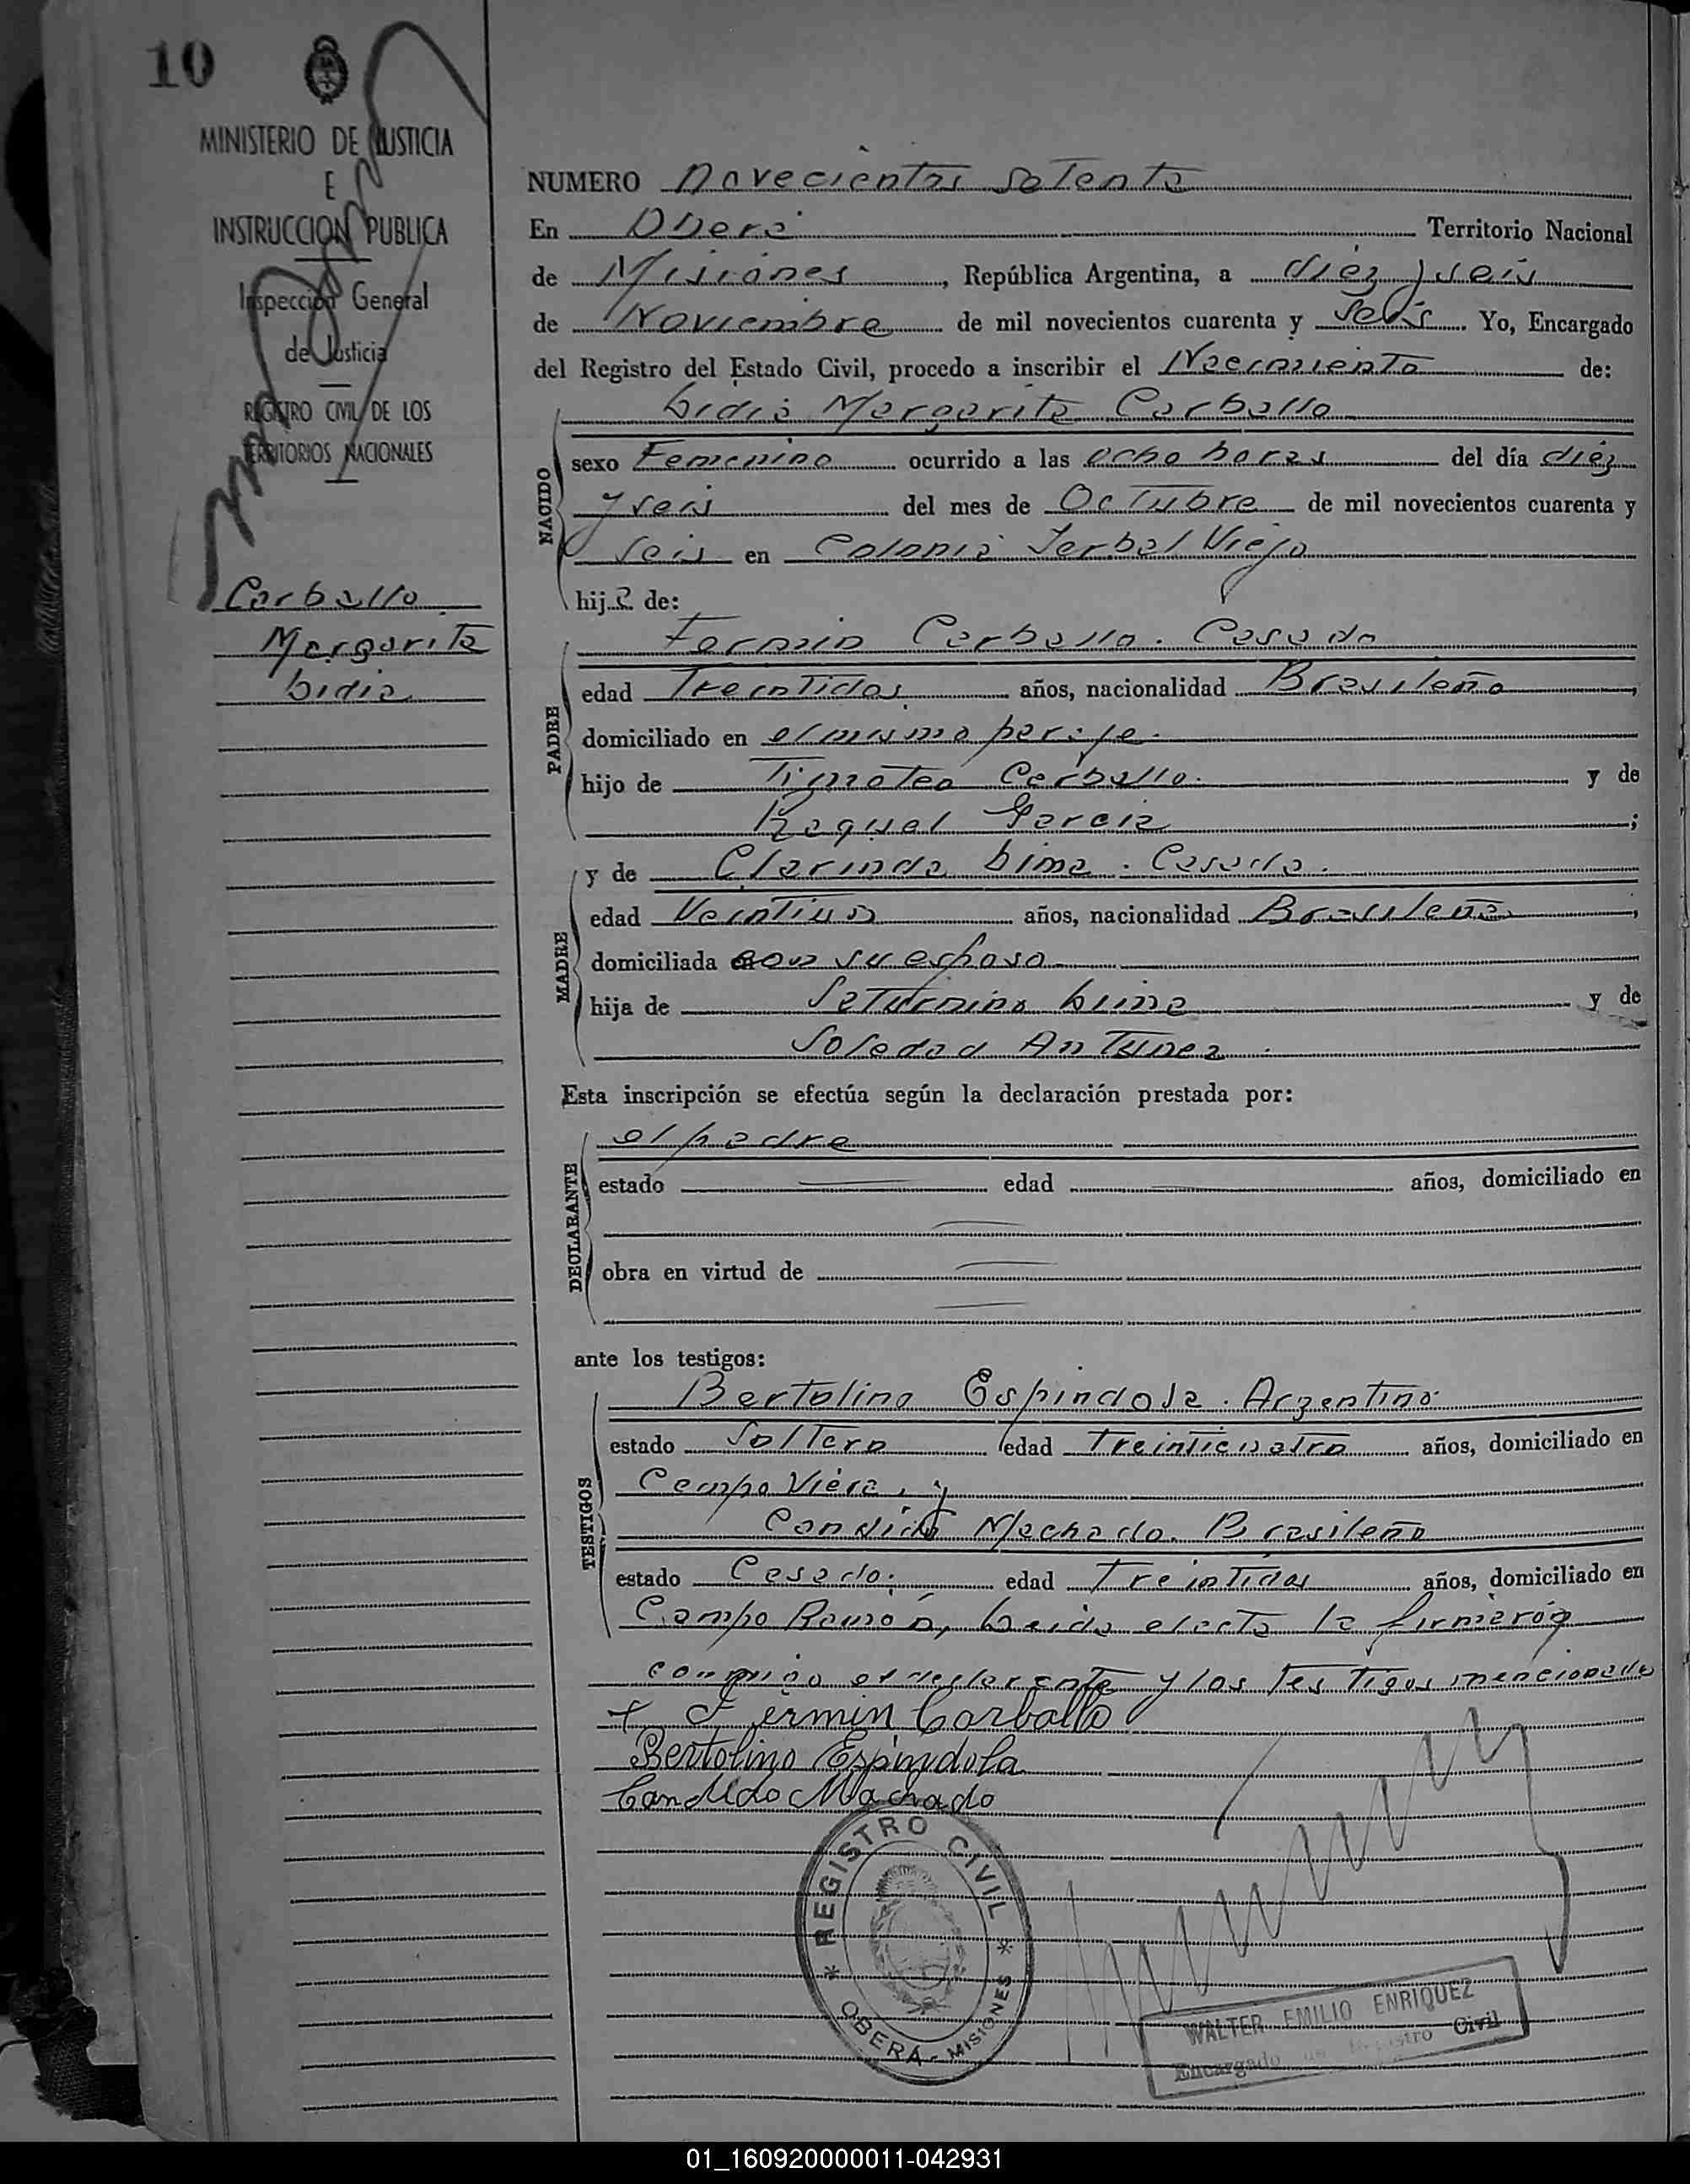 10
MINISTERIO DE JUSTICIA
E
INSTRUCCION PUBLICA
Inspección General
de Justicia
REGISTRO CIVIL DE LOS
TERRITORIOS NACIONALES
Carballo
Margarita
Lidia
NUMERO Novecientos setenta
En Oberá Territorio Nacional
de Misiones, República Argentina, a diez y seis
de Noviembre de mil novecientos cuarenta y seis. Yo, Encargado
del Registro del Estado Civil, procedo a inscribir el Nacimiento de:
Lidia Margarita Carballo
NACIDO
sexo Femenino ocurrido a las ocho horas del día diez
y seis del mes de Octubre de mil novecientos cuarenta y
seis en Colonia Yerbal Viejo
hija de:
Fermin Carballo. Casado
PADRE
edad Treintidos años, nacionalidad Brasileño,
domiciliado en el mismo paraje.
hijo de Timoteo Carballo. y de
Raquel Garcia;
y de Clarinda Lima. Casada.
MADRE
edad Veintiun años, nacionalidad Brasileña,
domiciliada con su esposo
hija de Saturnino Lima y de
Soledad Antunez.
Esta inscripción se efectúa según la declaración prestada por:
el padre
DECLARANTE
estado edad años, domiciliado en
obra en virtud de
ante los testigos:
Bertolino Espindola. Argentino
TESTIGOS
estado Soltero edad Treinticuatro años, domiciliado en
Campo Viera, y
Candido Machado. Brasileño
estado Casado; edad Treintidos años, domiciliado en
Campo Ramón, Leida el acta la firmarón
conmigo el declarante y los testigos mencionados
+ Fermin Carballo
Bertolino Espindola
Candido Machado
* REGISTRO CIVIL *
OBERÁ - MISIONES
WALTER EMILIO ENRIQUEZ
Encargado del Registro Civil
01_160920000011-042931